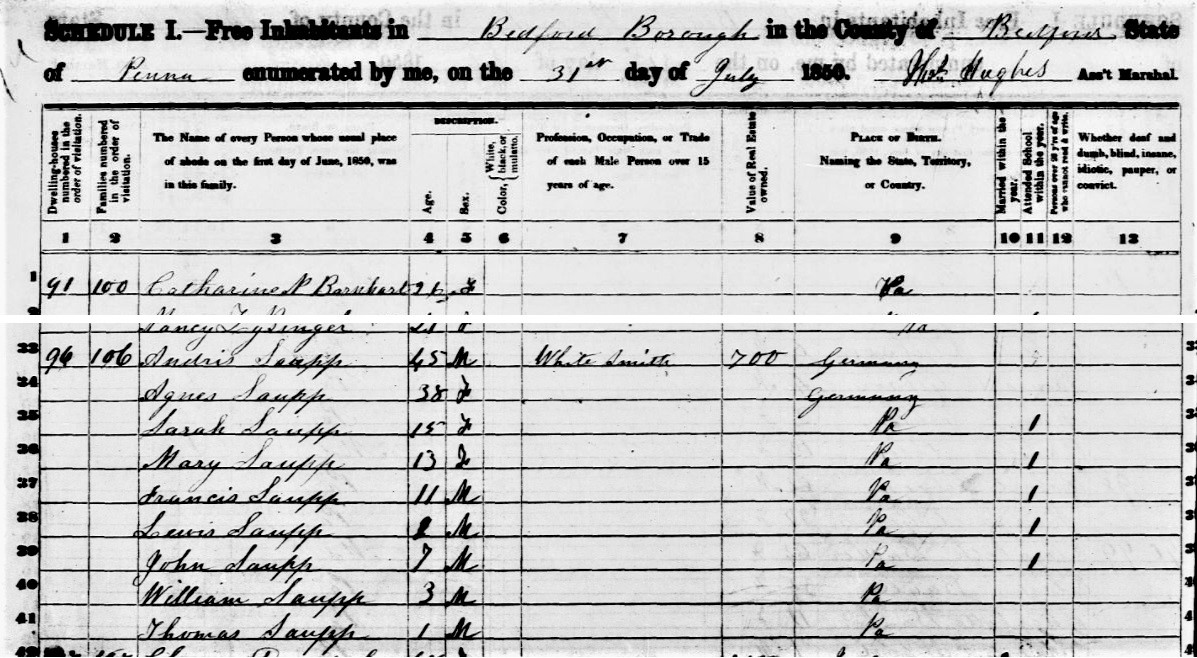 SCHEDULE I.—Free Inhabitants in Bedford Borough in the County of Bedford State
of Penna enumerated by me, on the 31st day of July 1850. Jno. Hughes Ass't Marshal.
Dwelling-houses numbered in the order of visitation.
Families numbered in the order of visitation.
The Name of every Person whose usual place of abode on the first day of June, 1850, was in this family.
DESCRIPTION.
Age.
Sex.
Color, { White, black, or mulatto.
Profession, Occupation, or Trade of each Male Person over 15 years of age.
Value of Real Estate owned.
PLACE OF BIRTH. Naming the State, Territory, or Country.
Married within the year.
Attended School within the year.
Persons over 20 y'rs of age who cannot read & write.
Whether deaf and dumb, blind, insane, idiotic, pauper, or convict.
1 2 3 4 5 6 7 8 9 10 11 12 13
1 91 100 Catharine N Barnhart F Pa
Nancy Lysinger
33 96 106 Andris Saupp 45 M White Smith 700 Germany
34 Agnes Saupp 38 F Germany
35 Sarah Saupp 15 F Pa 1
36 Mary Saupp 13 F Pa 1
37 Francis Saupp 11 M Pa 1
38 Lewis Saupp M Pa 1
39 John Saupp 7 M Pa 1
40 William Saupp 3 M Pa
41 Thomas Saupp 1 M Pa